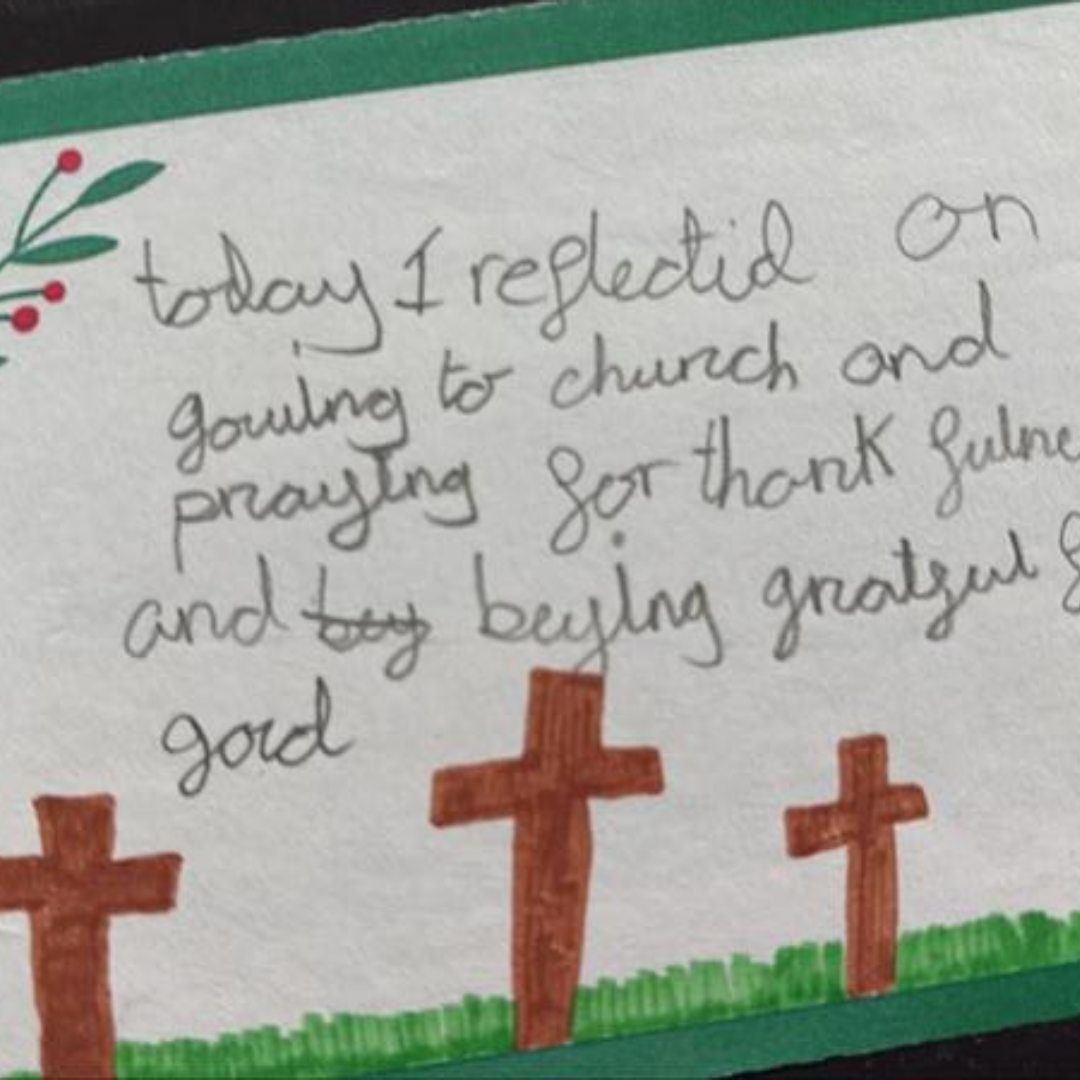 today I reflectid on
gouing to church and
praying for thank fulne
and bey beying gratful f
gord